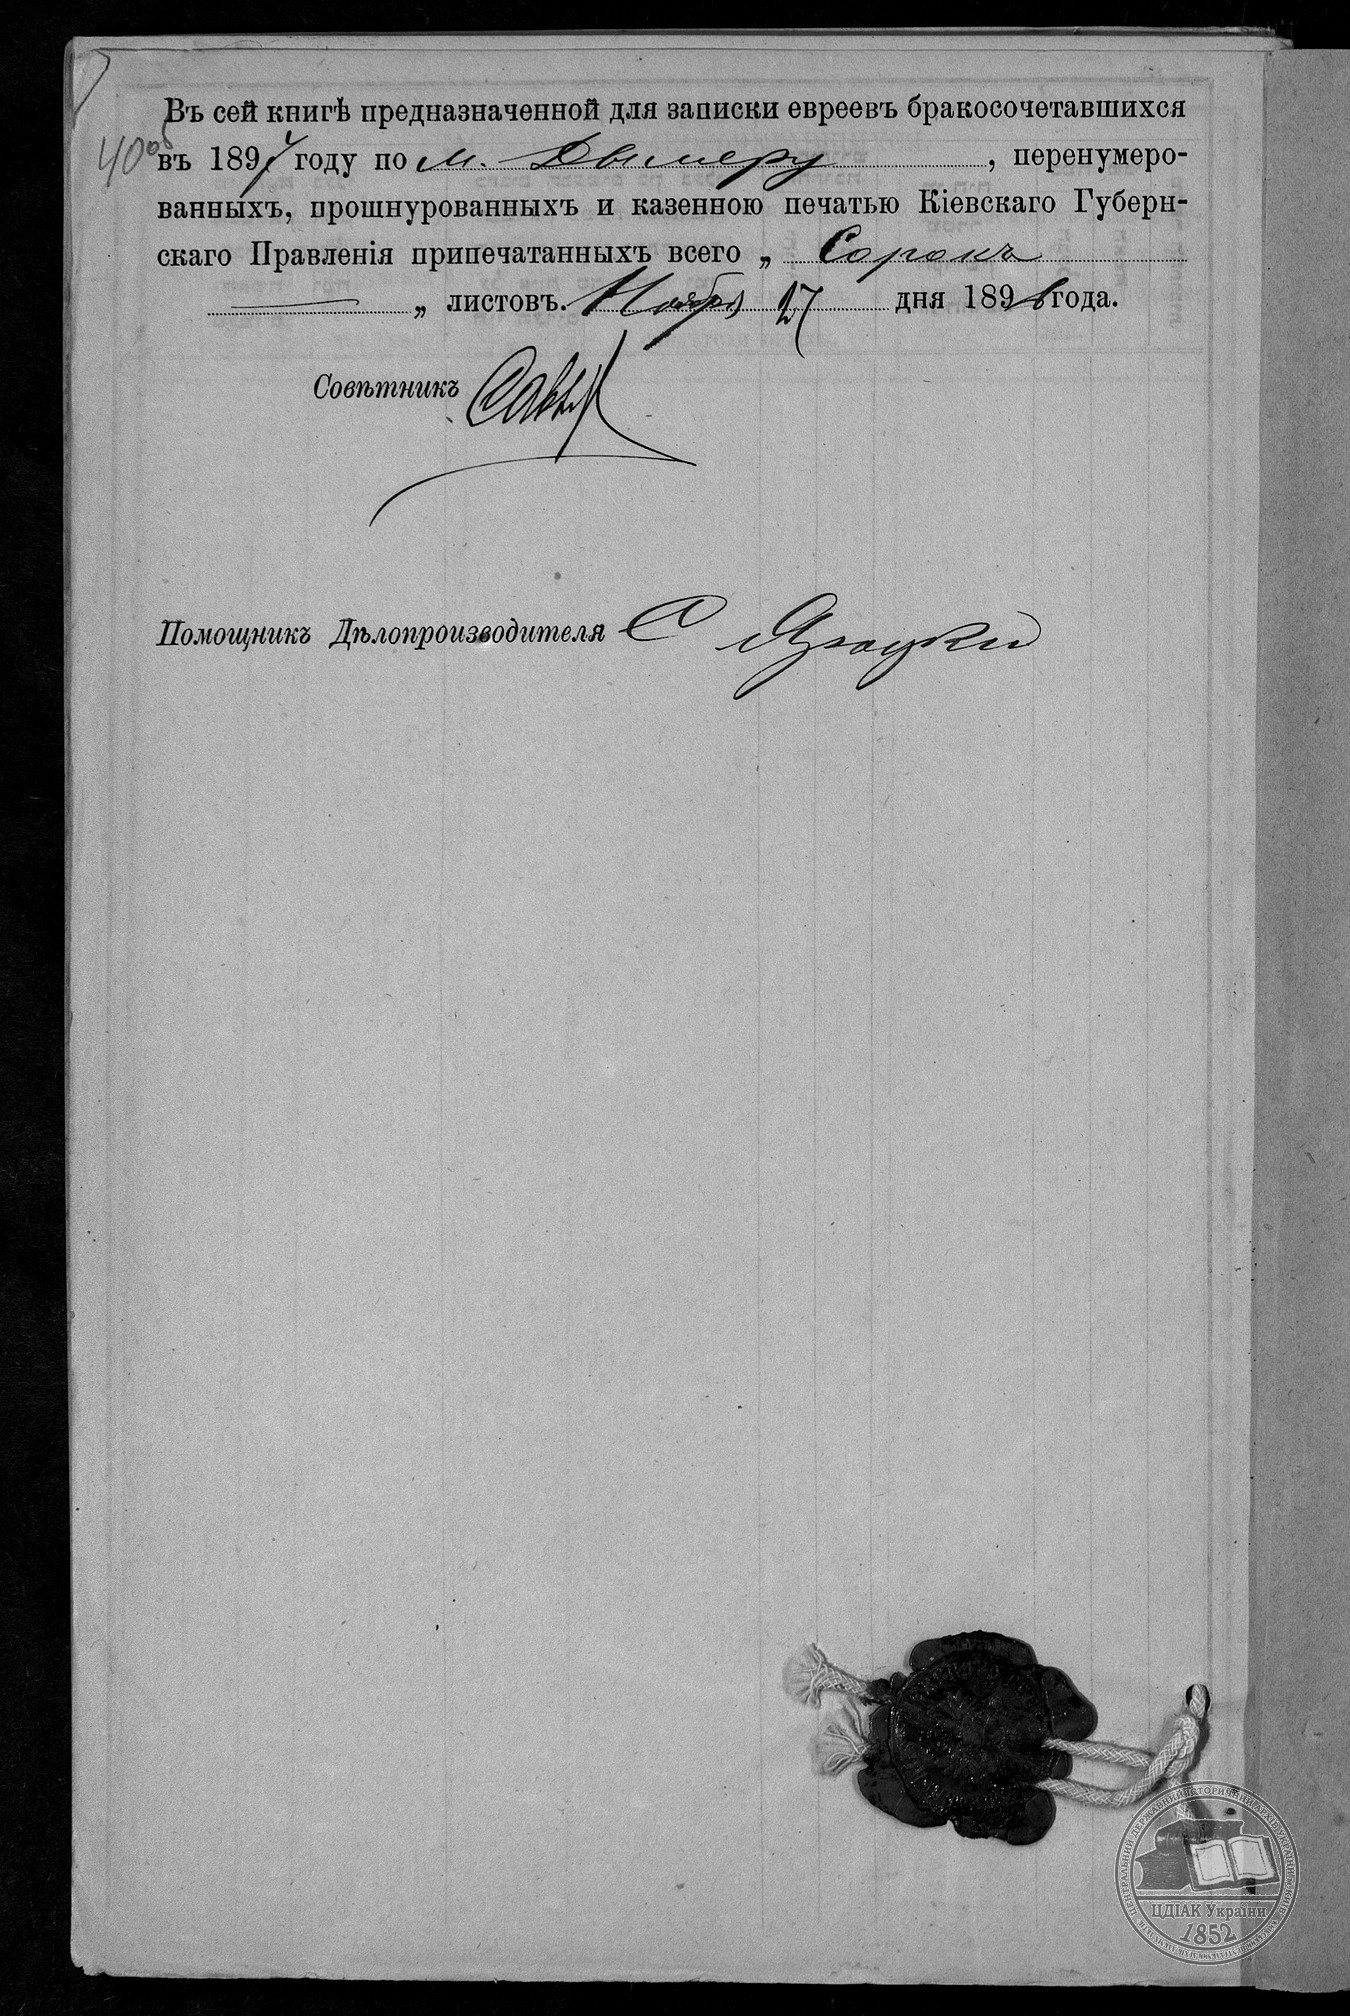 40 об
Въ сей книгѣ предназначенной для записки евреевъ бракосочетавшихся
въ 1897 году по м. Дымеру, перенумеро-
ванныхъ, прошнурованныхъ и казенною печатью Кіевскаго Губерн-
скаго Правленія припечатанныхъ всего „ Сорокъ
„ листовъ. Ноября 27 дня 1896 года.
Совѣтникъ
Помощникъ Дѣлопроизводителя С
ЦЕНТРАЛЬНИЙ ДЕРЖАВНИЙ ІСТОРИЧНИЙ АРХІВ УКРАЇНИ
ЦДІАК України
1852